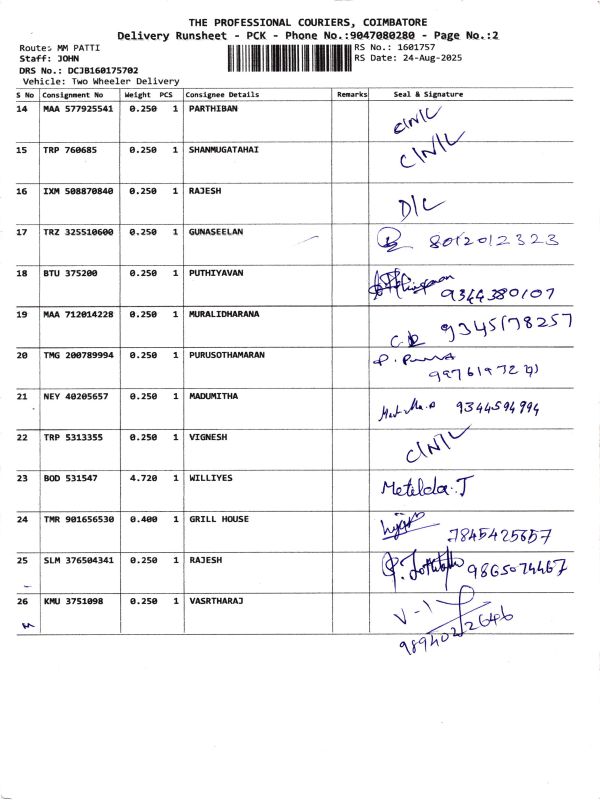 THE PROFESSIONAL COURIERS, COIMBATORE
Delivery Runsheet - PCK - Phone No.:9047080280 - Page No.:2
Route: MM PATTI RS No.: 1601757
Staff: JOHN RS Date: 24-Aug-2025
DRS No.: DCJB160175702
Vehicle: Two Wheeler Delivery
S No Consignment No Weight PCS Consignee Details Remarks Seal & Signature
14 MAA 577925541 0.250 1 PARTHIBAN C/N/L
15 TRP 760685 0.250 1 SHANMUGATAHAI C/N/L
16 IXM 508870840 0.250 1 RAJESH D/L
17 TRZ 325510600 0.250 1 GUNASEELAN 8012012323
18 BTU 375200 0.250 1 PUTHIYAVAN
9344380107
19 MAA 712014228 0.250 1 MURALIDHARANA 9345178257
20 TMG 200789994 0.250 1 PURUSOTHAMARAN
21 NEY 40205657 0.250 1 MADUMITHA 9344594994
22 TRP 5313355 0.250 1 VIGNESH C/N/L
23 BOD 531547 4.720 1 WILLIYES Metilda.J
24 TMR 901656530 0.400 1 GRILL HOUSE
7845425657
25 SLM 376504341 0.250 1 RAJESH 9865074467
26 KMU 3751098 0.250 1 VASRTHARAJ V-1
9894022646